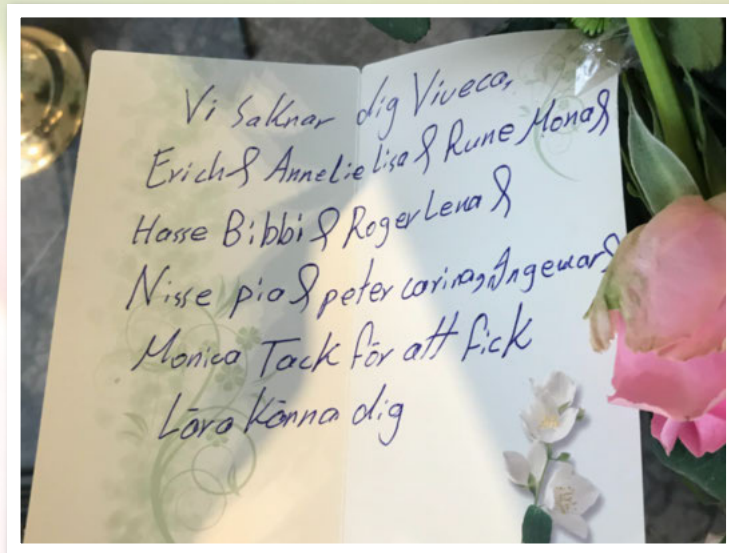 Vi Saknar dig Viveca,
Erich & Annelie lisa & Rune Mona &
Hasse Bibbi & Roger Lena &
Nisse pia & peter carina, Ingemar &
Monica Tack för att fick
Lära Känna dig